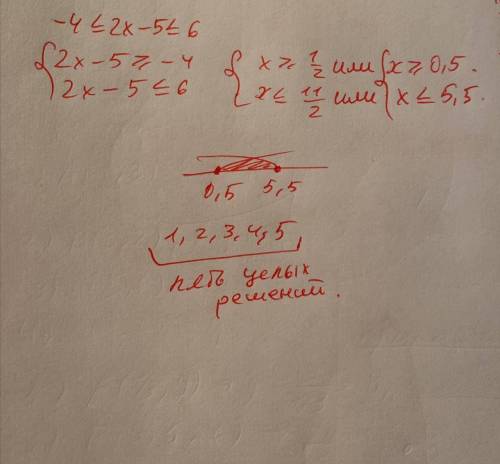 -4 ≤ 2x - 5 ≤ 6
{ 2x - 5 ≥ -4
2x - 5 ≤ 6
{ x ≥ 1/2 или { x ≥ 0,5.
x ≤ 11/2 или x ≤ 5,5.
0,5 5,5
1, 2, 3, 4, 5
пять целых
решений.